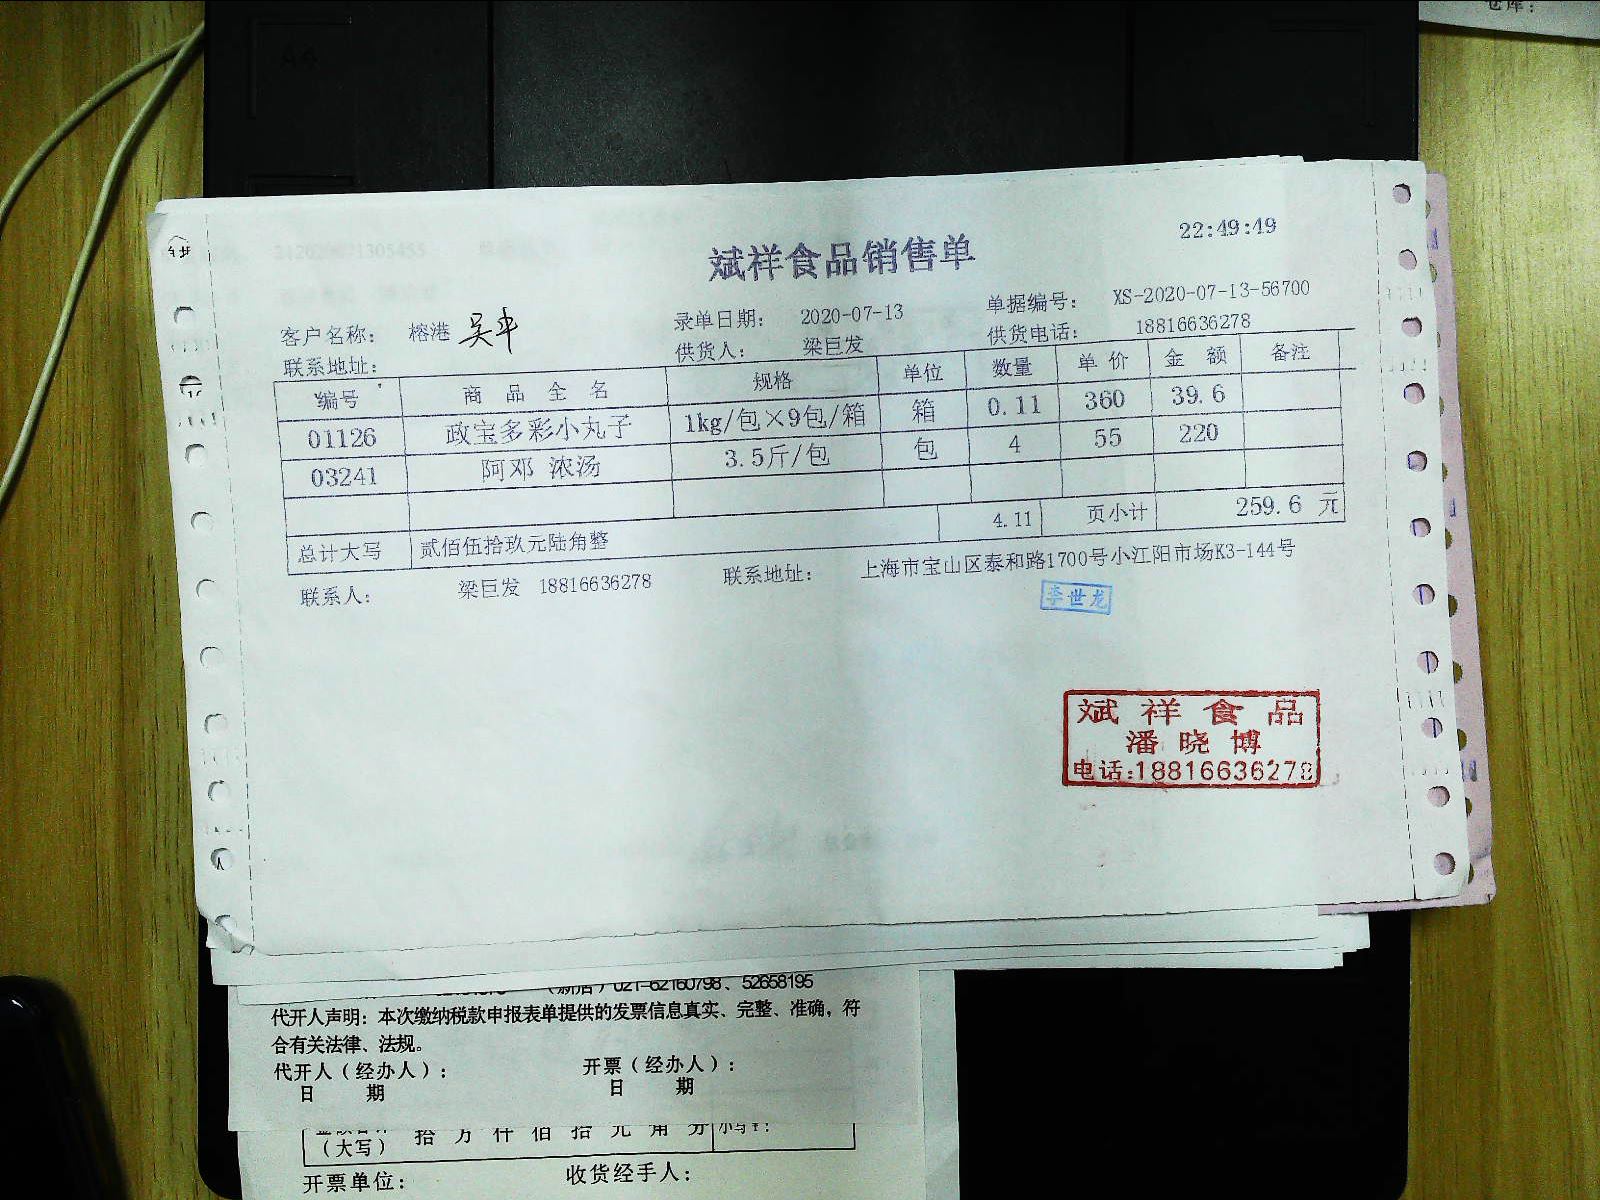 仓库：
22:49:49
斌祥食品销售单
客户名称： 榕港 吴平 录单日期： 2020-07-13 单据编号： XS-2020-07-13-56700
联系地址： 供货人： 梁巨发 供货电话： 18816636278
编号 商品全名 规格 单位 数量 单价 金额 备注
01126 政宝多彩小丸子 1kg/包×9包/箱 箱 0.11 360 39.6
03241 阿邓 浓汤 3.5斤/包 包 4 55 220
4.11 页小计 259.6 元
总计大写 贰佰伍拾玖元陆角整
联系人： 梁巨发 18816636278 联系地址： 上海市宝山区泰和路1700号小江阳市场K3-144号
李世龙
斌祥食品
潘晓博
电话:18816636278
（新店）021-62160798、52658195
代开人声明：本次缴纳税款申报表单提供的发票信息真实、完整、准确，符
合有关法律、法规。
代开人（经办人）： 开票（经办人）：
日 期 日 期
（大写） 拾 万 仟 佰 拾 元 角 分 小写￥：
开票单位： 收货经手人：